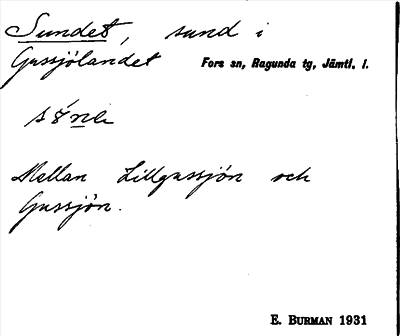 Sundet, sund i
Gussjölandet Fors sn, Ragunda tg, Jämtl. l.
Mellan Lillgussjön och
Gussjön.
E. BURMAN 1931